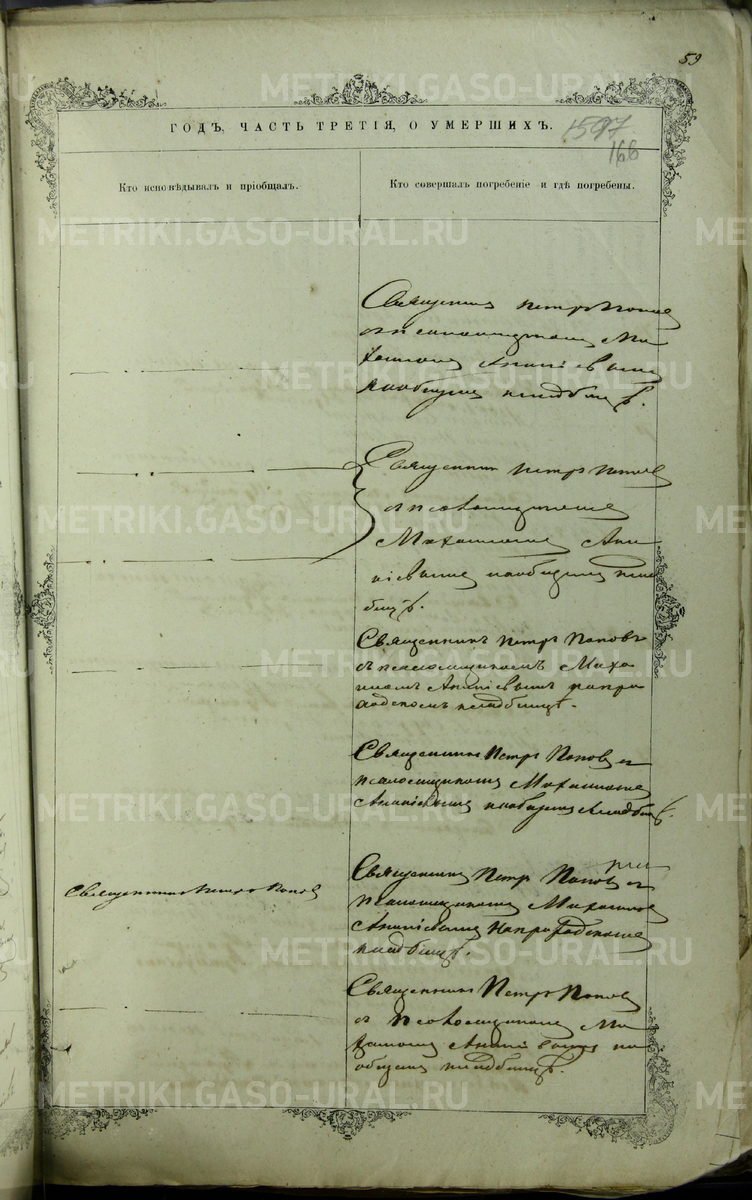 59
ГОДЪ, ЧАСТЬ ТРЕТІЯ, О УМЕРШИХЪ.
1597
166
Кто исповѣдывалъ и пріобщалъ.
Кто совершалъ погребеніе и гдѣ погребены.
Священникъ Петръ Поповъ
съ псаломщикомъ Ми-
хаиломъ Ананіевымъ
на общемъ кладбищѣ.
Священникъ Петръ Поповъ
съ псаломщикомъ
Михаиломъ Ана-
ніевымъ на общемъ клад-
бищѣ.
Священникъ Петръ Поповъ
съ псаломщикомъ Миха-
иломъ Ананіевымъ на приход-
скомъ кладбищѣ.
Священникъ Петръ Поповъ съ
псаломщикомъ Михаиломъ
Ананіевымъ на общемъ кладбищѣ.
Священникъ Петръ Поповъ
Священникъ Петръ Поповъ съ
псаломщикомъ Михаиломъ
Ананіевымъ на приходскомъ
кладбищѣ.
Священникъ Петръ Поповъ
съ псаломщикомъ Ми-
хаиломъ Ананіевымъ на
общемъ кладбищѣ.
METRIKI.GASO-URAL.RU